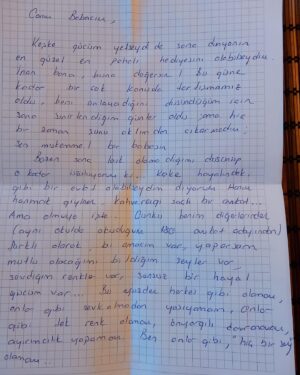 Canım Babacım,
Keşke gücüm yetseydi de sana dünyanın
en güzel en pahalı hediyesini alabilseydim.
İnan bana, buna değersin! Bu güne
kadar bir çok konuda tartışmamız
oldu, beni anlamadığını düşündüğüm için
sana sinirlendiğim günler oldu ama hiç
bir zaman şunu aklımdan çıkarmadım;
sen mükemmel bir babasın.
Bazen sana layık olamadığımı düşünüp
o kadar üzülüyorum ki. Keşke hayalindeki
gibi bir evlat olabilseydim diyorum. Hani
hanımat giyinen, kahverengi saçlı bir avukat...
Ama olmuyor işte. Çünkü benim diğerlerinden
(aynı okulda okuduğum avukat adayından)
farklı olarak, bir amacım var, yaparsam
mutlu olacağımı bildiğim şeyler var,
sevdiğim renkler var, sonsuz bir hayal
gücüm var... Bu yüzden herkes gibi olamam,
onlar gibi zevk almadan yaşayamam, onlar
gibi tek renk olamam, önyargılı davranamam,
ayrımcılık yapamam. Ben onlar gibi, "hiç bir şey"
olamam...